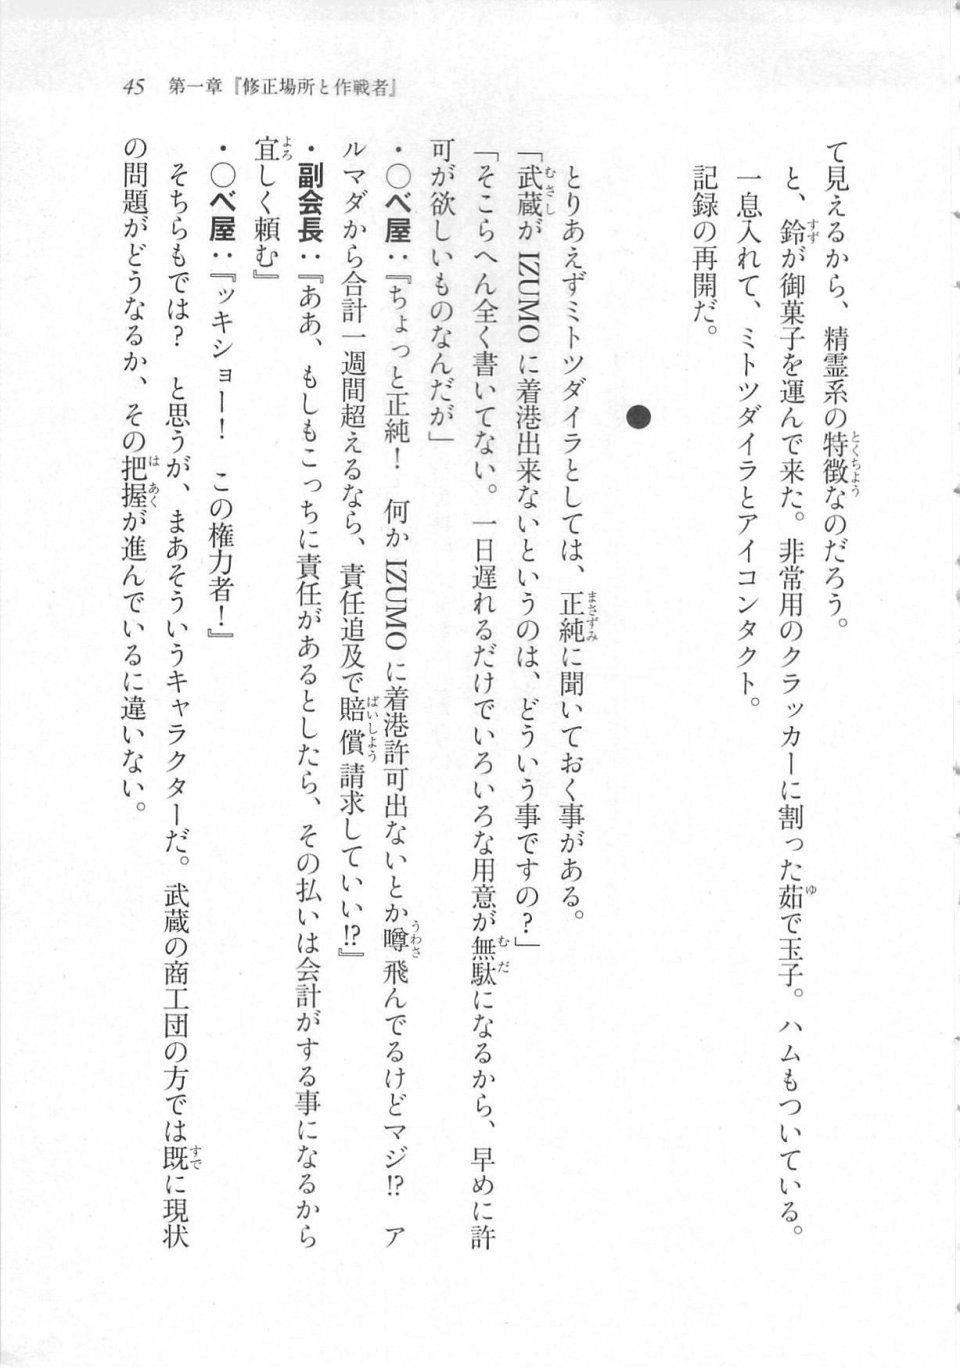 45 第一章『修正場所と作戦者』
て見えるから、精霊系の特徴なのだろう。
と、鈴が御菓子を運んで来た。非常用のクラッカーに割った茹で玉子。ハムもついている。
一息入れて、ミトツダイラとアイコンタクト。
記録の再開だ。
●
とりあえずミトツダイラとしては、正純に聞いておく事がある。
「武蔵が IZUMO に着港出来ないというのは、どういう事ですの？」
「そこらへん全く書いてない。一日遅れるだけでいろいろな用意が無駄になるから、早めに許
可が欲しいものなんだが」
・〇べ屋：『ちょっと正純！　何か IZUMO に着港許可出ないとか噂飛んでるけどマジ!?　ア
ルマダから合計一週間超えるなら、責任追及で賠償請求していい!?』
・副会長：『ああ、もしもこっちに責任があるとしたら、その払いは会計がする事になるから
宜しく頼む』
・〇べ屋：『ッキショー！　この権力者！』
そちらもでは？　と思うが、まあそういうキャラクターだ。武蔵の商工団の方では既に現状
の問題がどうなるか、その把握が進んでいるに違いない。